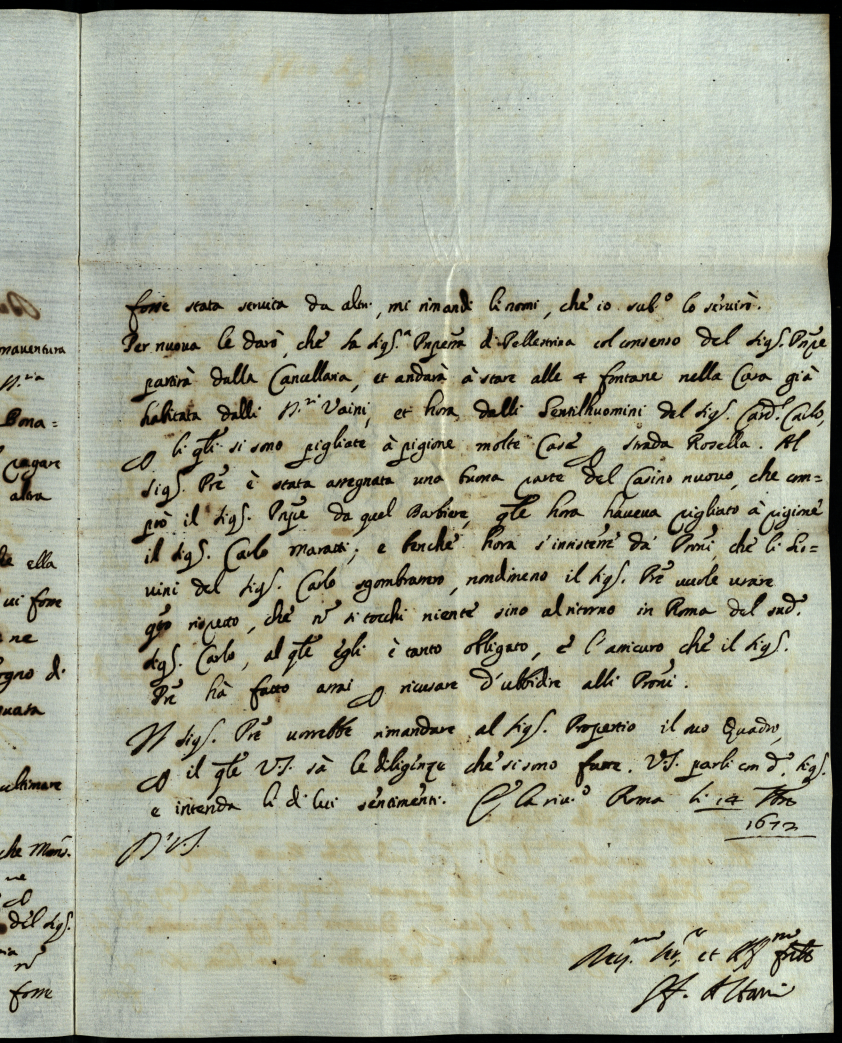 naventura
N.ria
Bona=
pagare
altra
ella
vi fosse
ne
egno di
ultimare
che Mons.
ne
del Sig.
nō
fosse
fosse stata servita da altri, mi rimandi li nomi, che io sub.o lo servirò.
Per nuova le darò, che la Sig.ra Pnpessa di Pellestrina col consenso del Sig. Pnpe
partirà dalla Cancellaria, et andarà à stare alle 4 fontane nella Casa già
habitata dalli SS.ri Vaini, et hora dalli Gentilhuomini del Sig. Card. Carlo,
p li qli si sono pigliate à pigione molte Case p strada Rosella. Al
Sig. Pre è stata assegnata una buona parte del Casino nuovo, che com=
prò il Sig. Pnpe da quel Barbiere, qle hora haveva pigliato à pigione
il Sig. Carlo Maratti; e benche hora s'insistesse da Proni, che li Gio=
vini del Sig. Carlo sgombrassero, nondimeno il Sig. Pre vuole usare
qto rispetto, che nō si tocchi niente sino al ritorno in Roma del sud.o
Sig. Carlo, al qle egli è tanto obligato, e l'assicuro che il Sig.
Pre hà fatto assai p ricusare d'ubbidire alli Proni.
Il Sig. Pre vorrebbe rimandare al Sig. Propertio il suo Quadro,
p il qle VS. sà le diligenze che si sono fatte. VS. parli con d.o Sig.
e intenda li di lui sentimenti. E la riv.o Roma li 14
1672
D' V.S.
Ser.re et Aff.mo